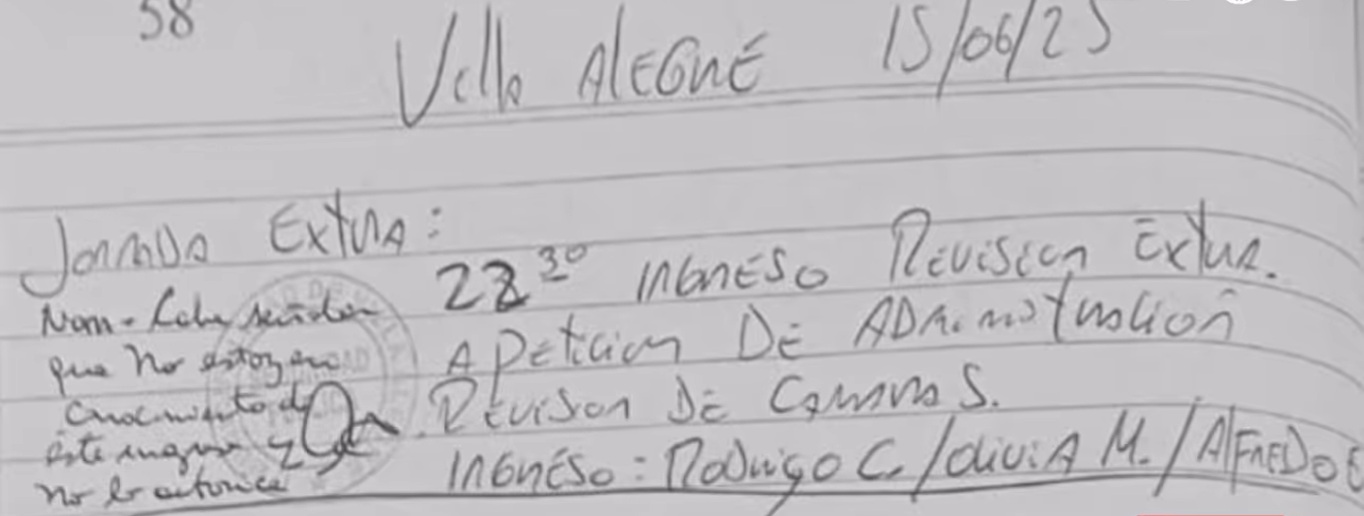 58
Villa AlEGRE 15/06/25
Jornada Extra:
22 30 INGRESO Revision Extra.
A peticion DE ADministracion
Revison DE Camaras.
INGRESO: Rodrigo C. / oliviA M. / AlFREDO
Nam - Cabe señalar
que no estoy en
conocimiento de
este ingreso y
no lo autorice